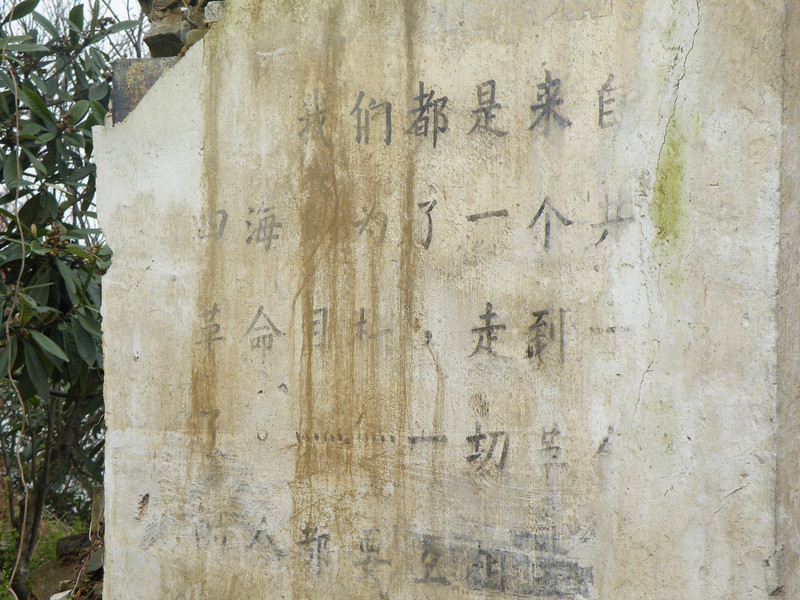 我们都是来自
四海 为了一个共
革命目标，走到一
了。……一切革
的人都要互相